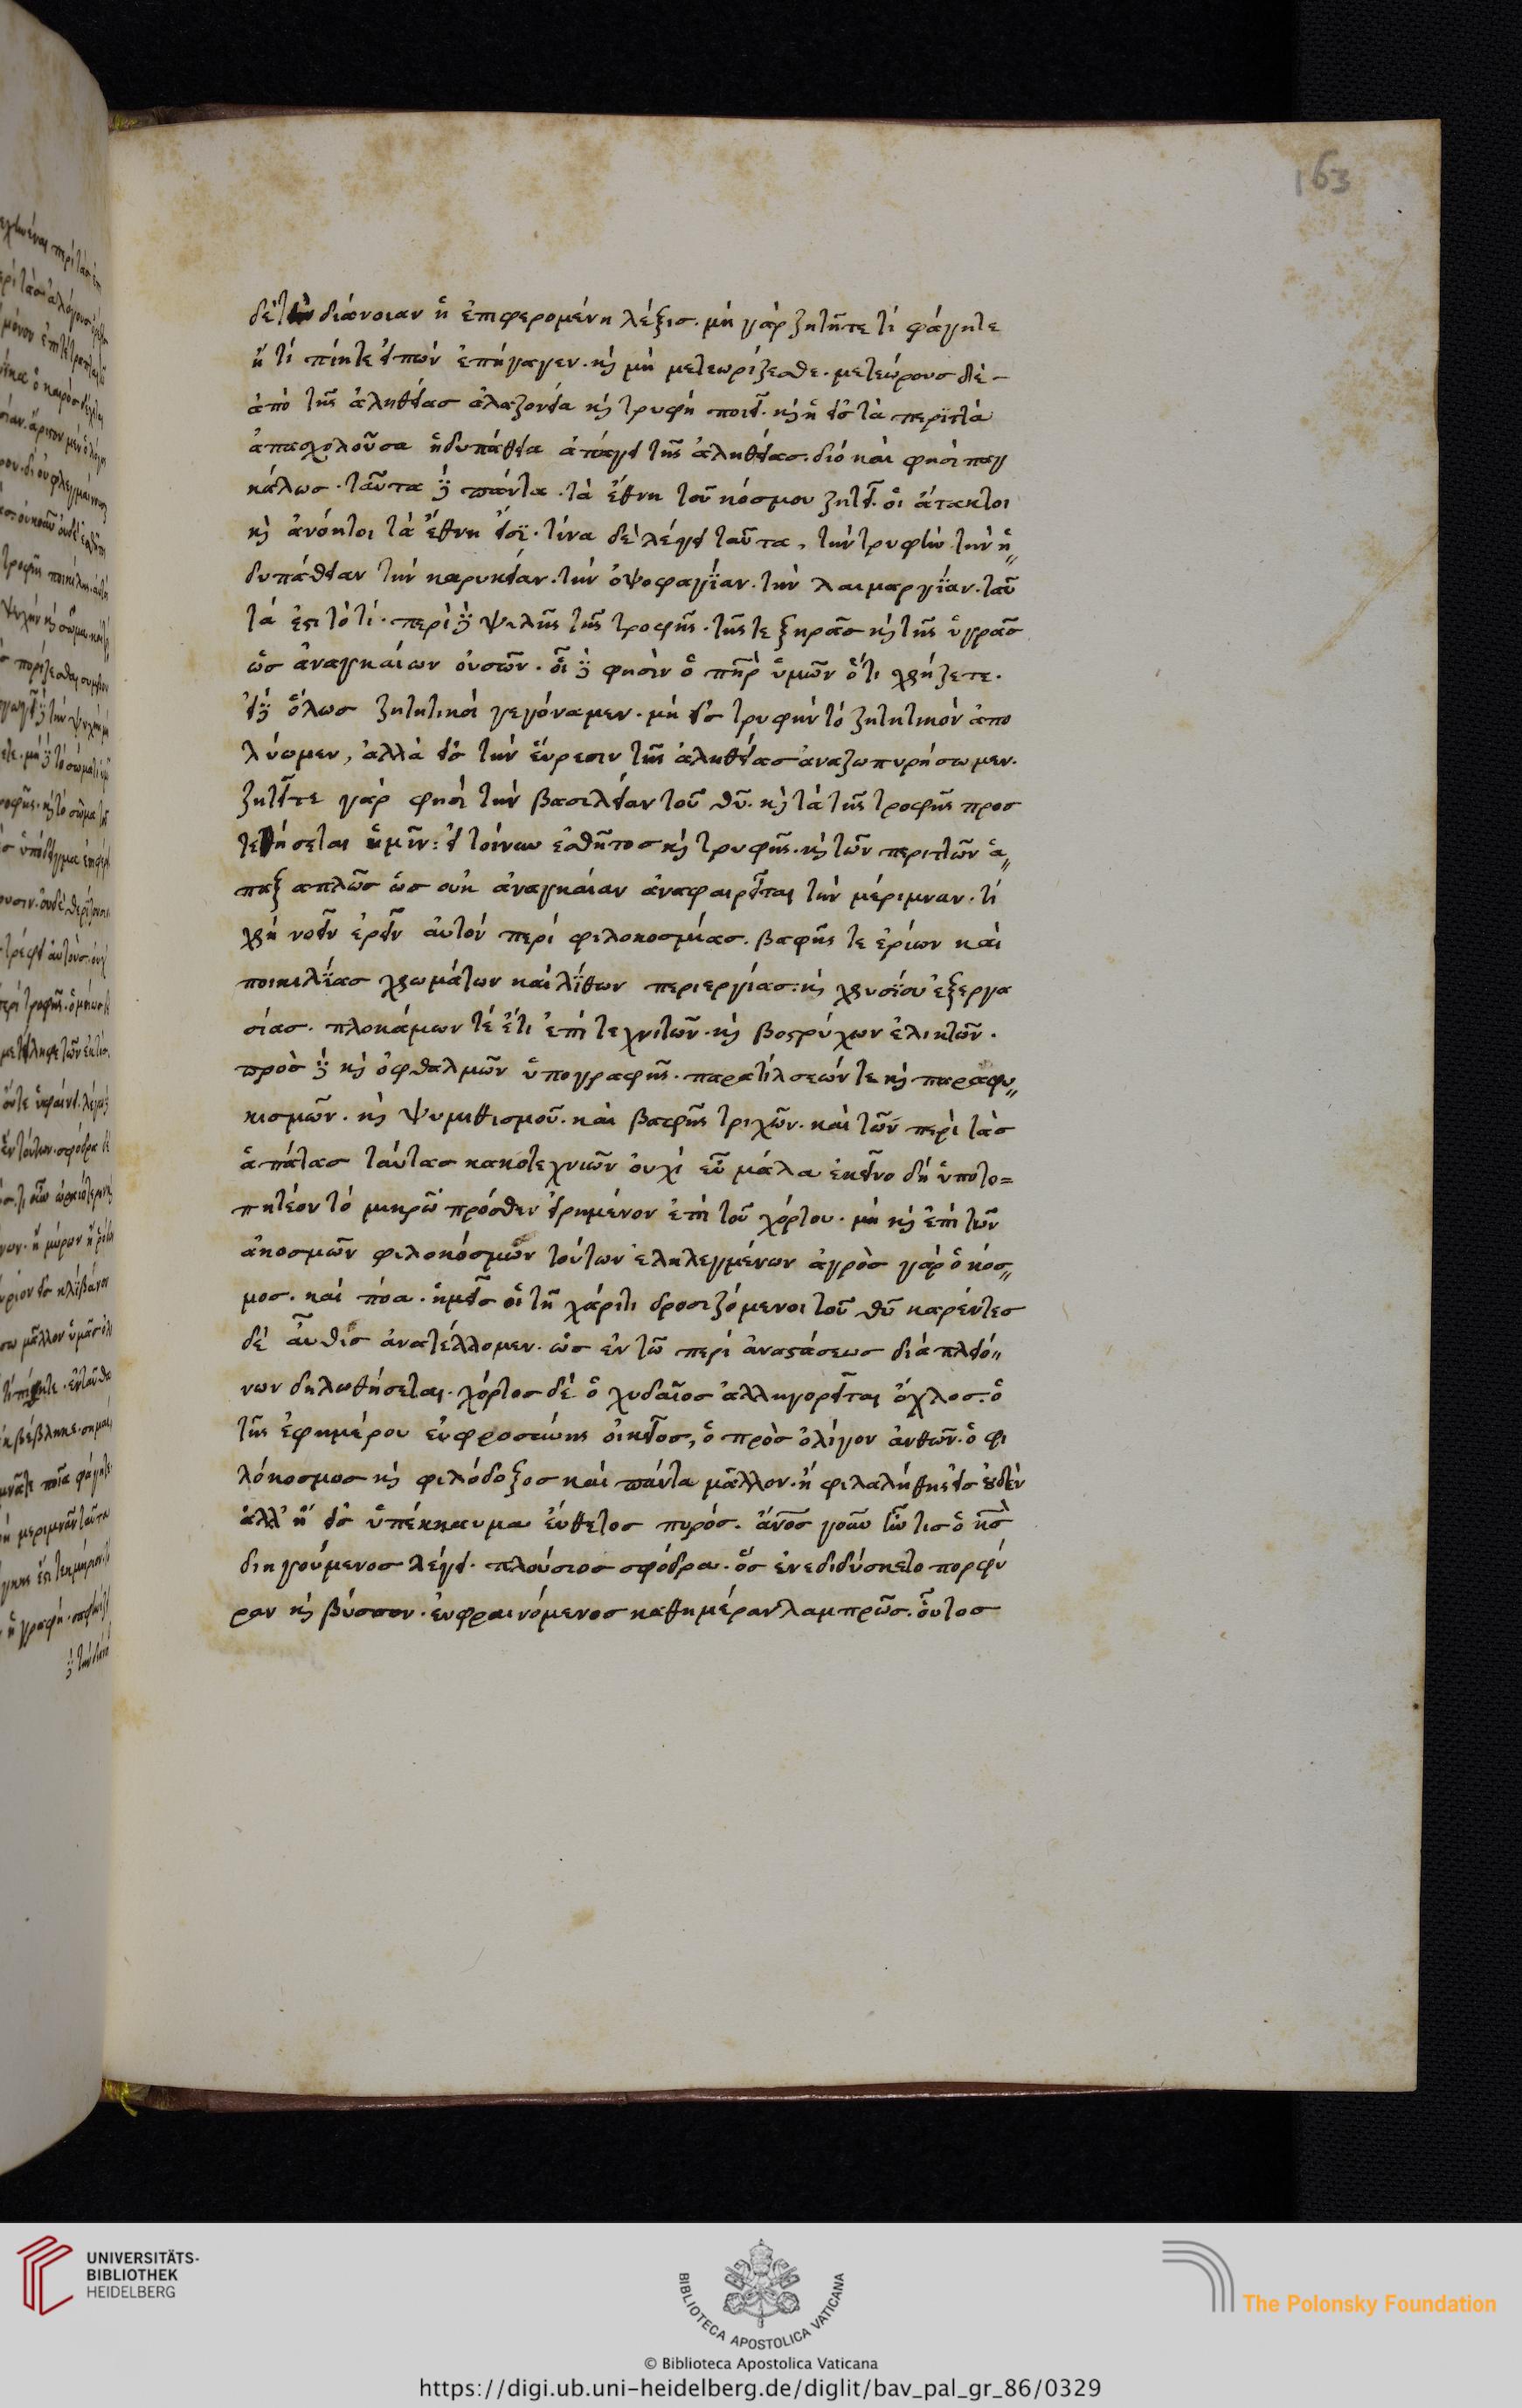 163
δὲ τὴν διάνοιαν ἡ ἐπιφερομένη λέξισ. μὴ γὰρ ζητῆτε τί φάγητε
ἢ τί πίητε εἰπὼν ἐπήγαγεν. κ̀ μὴ μετεωρίζεσθε. μετεώρουσ δὲ
ἀπὸ τῆς ἀληθείασ ἀλαζονεία κ̀ τρυφὴ ποιεῖ. κ̀ ἡ εἰσ τὰ περϊττὰ
ἀπασχολοῦσα ἡδυπάθεια ἀπάγει τῆς ἀληθείασ. διὸ καὶ φησὶ παγ
κάλωσ. ταῦτα δὲ πάντα. τὰ ἔθνη τοῦ κόσμου ζητεῖ. οἱ ἄτακτοι
κ̀ ἀνόητοι τὰ ἔθνη εἰσϊ. τίνα δὲ λέγει ταῦτα, τὴν τρυφὴν τὴν ἡ
δυπάθειαν τὴν καρυκείαν. τὴν ὀψοφαγΐαν. τὴν λαιμαργΐαν. ταῦ
τά ἐστι τὸ τί. περὶ δὲ ψιλῆς τῆς τροφῆς. τῆς τε ξηρᾶσ κ̀ τῆς ὑγρᾶσ
ὡσ ἀναγκαίων οὐσῶν. οἶ δὲ φησὶν ὁ πη̅ρ ὑμῶν ὅτι χρήζετε.
εἰ δὲ ὅλωσ ζητητικοὶ γεγόναμεν. μὴ εἰσ τρυφὴν τὸ ζητητικὸν ἀπο
λύωμεν, ἀλλὰ εἰσ τὴν εὕρεσιν τῆς ἀληθείασ ἀναζωπυρήσωμεν.
ζητεῖτε γὰρ φησὶ τὴν βασιλείαν τοῦ θυ̅. κ̀ τὰ τῆς τροφῆς προσ
τεθήσεται ὑμῖν: εἰ τοίνυν ἐσθῆτοσ κ̀ τρυφῆς. κ̀ τῶν περιττῶν ἁ
παξ απλῶσ ὡσ οὐκ ἀναγκαίαν ἀναφαιρεῖται τὴν μέριμναν. τί
χρὴ νοεῖν ἐρεῖν αὐτὸν περὶ φιλοκοσμίασ. βαφῆς τε ἐρίων καὶ
ποικιλΐασ χρωμάτων καὶ λΐθων περιεργίασ: κ̀ χρυσΐου ἐξεργα
σίασ. πλοκάμων τέ ἔτι ἐπὶ τεχνιτῶν. κ̀ βοστρύχων ἑλικτῶν.
πρὸσ δὲ κ̀ ὀφθαλμῶν ὑπογραφῆς. παρατίλσεών τε κ̀ παραφυ
κισμῶν. κ̀ ψυμιθισμοῦ. καὶ βαφῆς τριχῶν. καὶ τῶν περὶ τὰσ
ἀπάτασ ταύτασ κακοτεχνιῶν οὐχὶ εὖ μάλα ἐκεῖνο δὴ ὑποτο=
πητέον τὸ μικρῶ πρόσθεν εἰρημένον ἐπὶ τοῦ χόρτου. μὴ κ̀ ἐπὶ τῶν
ἀκοσμῶν φιλοκόσμων τούτων ἐληλεγμένων ἀγρὸσ γὰρ ὁ κόσ
μοσ. καὶ πόα. ἡμεῖσ οἱ τῆ χάριτι δροσιζόμενοι τοῦ θυ̅ καρέντεσ
δὲ αὖθισ ἀνατέλλομεν. ὡσ ἐν τῶ περὶ ἀναστάσεωσ διὰ πλειό
νων δηλωθήσεται. χόρτοσ δὲ ὁ χυδαῖοσ ἀλληγορεῖται ὄχλοσ. ὁ
τῆς ἐφημέρου εὐφροσύνης οἰκεῖοσ, ὁ πρὸσ ὀλίγον ἀνθῶν. ὁ φι
λόκοσμοσ κ̀ φιλόδοξοσ καὶ πάντα μᾶλλον. ἢ φιλαλήθησ εἰσ οὐδὲν
ἀλλ' ἢ εἰσ ὑπέκκαυμα εὔθετοσ πυρόσ. ἄνο̅σ γοῦν ἦν τισ ὁ κσ̅
διηγούμενοσ λέγει. πλούσιοσ σφόδρα. ὃσ ἐνεδιδύσκετο πορφύ
ραν κ̀ βύσσον. εὐφραινόμενοσ καθημέραν λαμπρῶσ. οὗτοσ
UNIVERSITÄTS-
BIBLIOTHEK
HEIDELBERG
BIBLIOTECA APOSTOLICA VATICANA
The Polonsky Foundation
© Biblioteca Apostolica Vaticana
https://digi.ub.uni-heidelberg.de/diglit/bav_pal_gr_86/0329